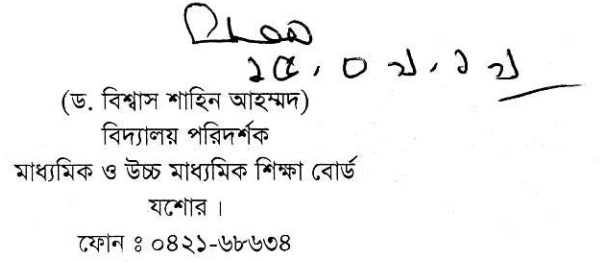 (ড. বিশ্বাস শাহিন আহম্মদ)
বিদ্যালয় পরিদর্শক
মাধ্যমিক ও উচ্চ মাধ্যমিক শিক্ষা বোর্ড
যশোর ।
ফোন ঃ ০৪২১-৬৮৬৩৪